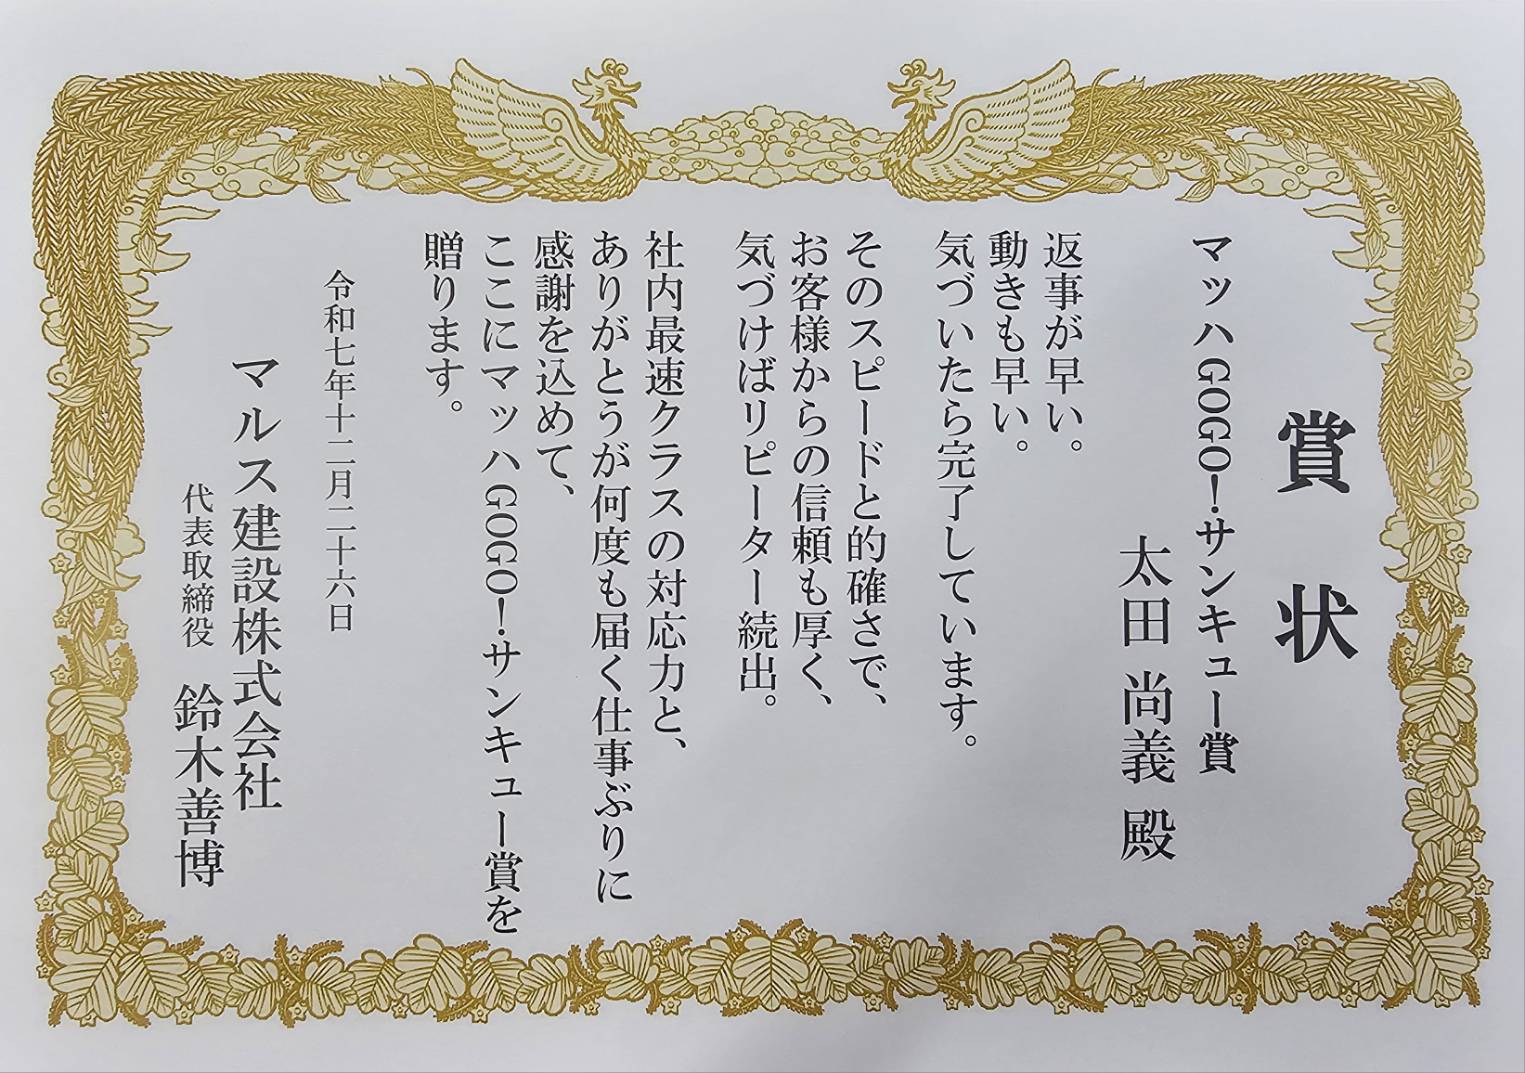 賞状
マッハGOGO!サンキュー賞
太田 尚義 殿
返事が早い。
動きも早い。
気づいたら完了しています。
そのスピードと的確さで、
お客様からの信頼も厚く、
気づけばリピーター続出。
社内最速クラスの対応力と、
ありがとうが何度も届く仕事ぶりに
感謝を込めて、
ここにマッハGOGO!サンキュー賞を
贈ります。
令和七年十二月二十六日
マルス建設株式会社
代表取締役 鈴木善博